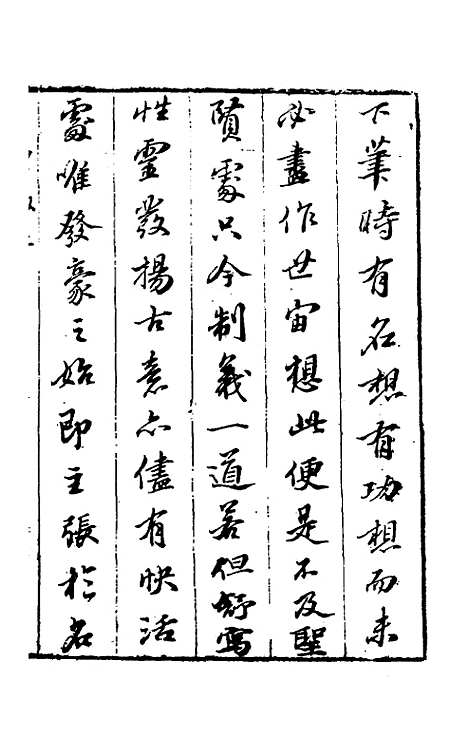 下筆時有名想有功想而未
必盡作世宙想此便是不及聖
賢處只今制義一道若但舒寫
性靈發揚古意亦儘有快活
處唯發豪之始即主張於名